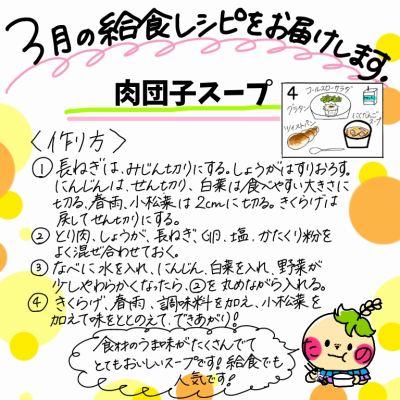 3月の給食レシピをお届けします。
肉団子スープ
4
コールスローサラダ
グラタン
にくだんごスープ
ツイストパン
〈作り方〉
① 長ねぎは、みじん切りにする。しょうがはすりおろす。
にんじんは、せん切り、白菜は食べやすい大きさに
切る、春雨、小松菜は2cmに切る。きくらげは
戻してせん切りにする。
② とり肉、しょうが、長ねぎ、卵、塩、かたくり粉を
よく混ぜ合わせておく。
③ なべに水を入れ、にんじん、白菜を入れ、野菜が
少しやわらかくなったら、②を丸めながら入れる。
④ きくらげ、春雨、調味料を加え、小松菜を
加えて味をととのえて、できあがり!
食材のうま味がたくさんでて
とてもおいしいスープです!給食でも
人気です!